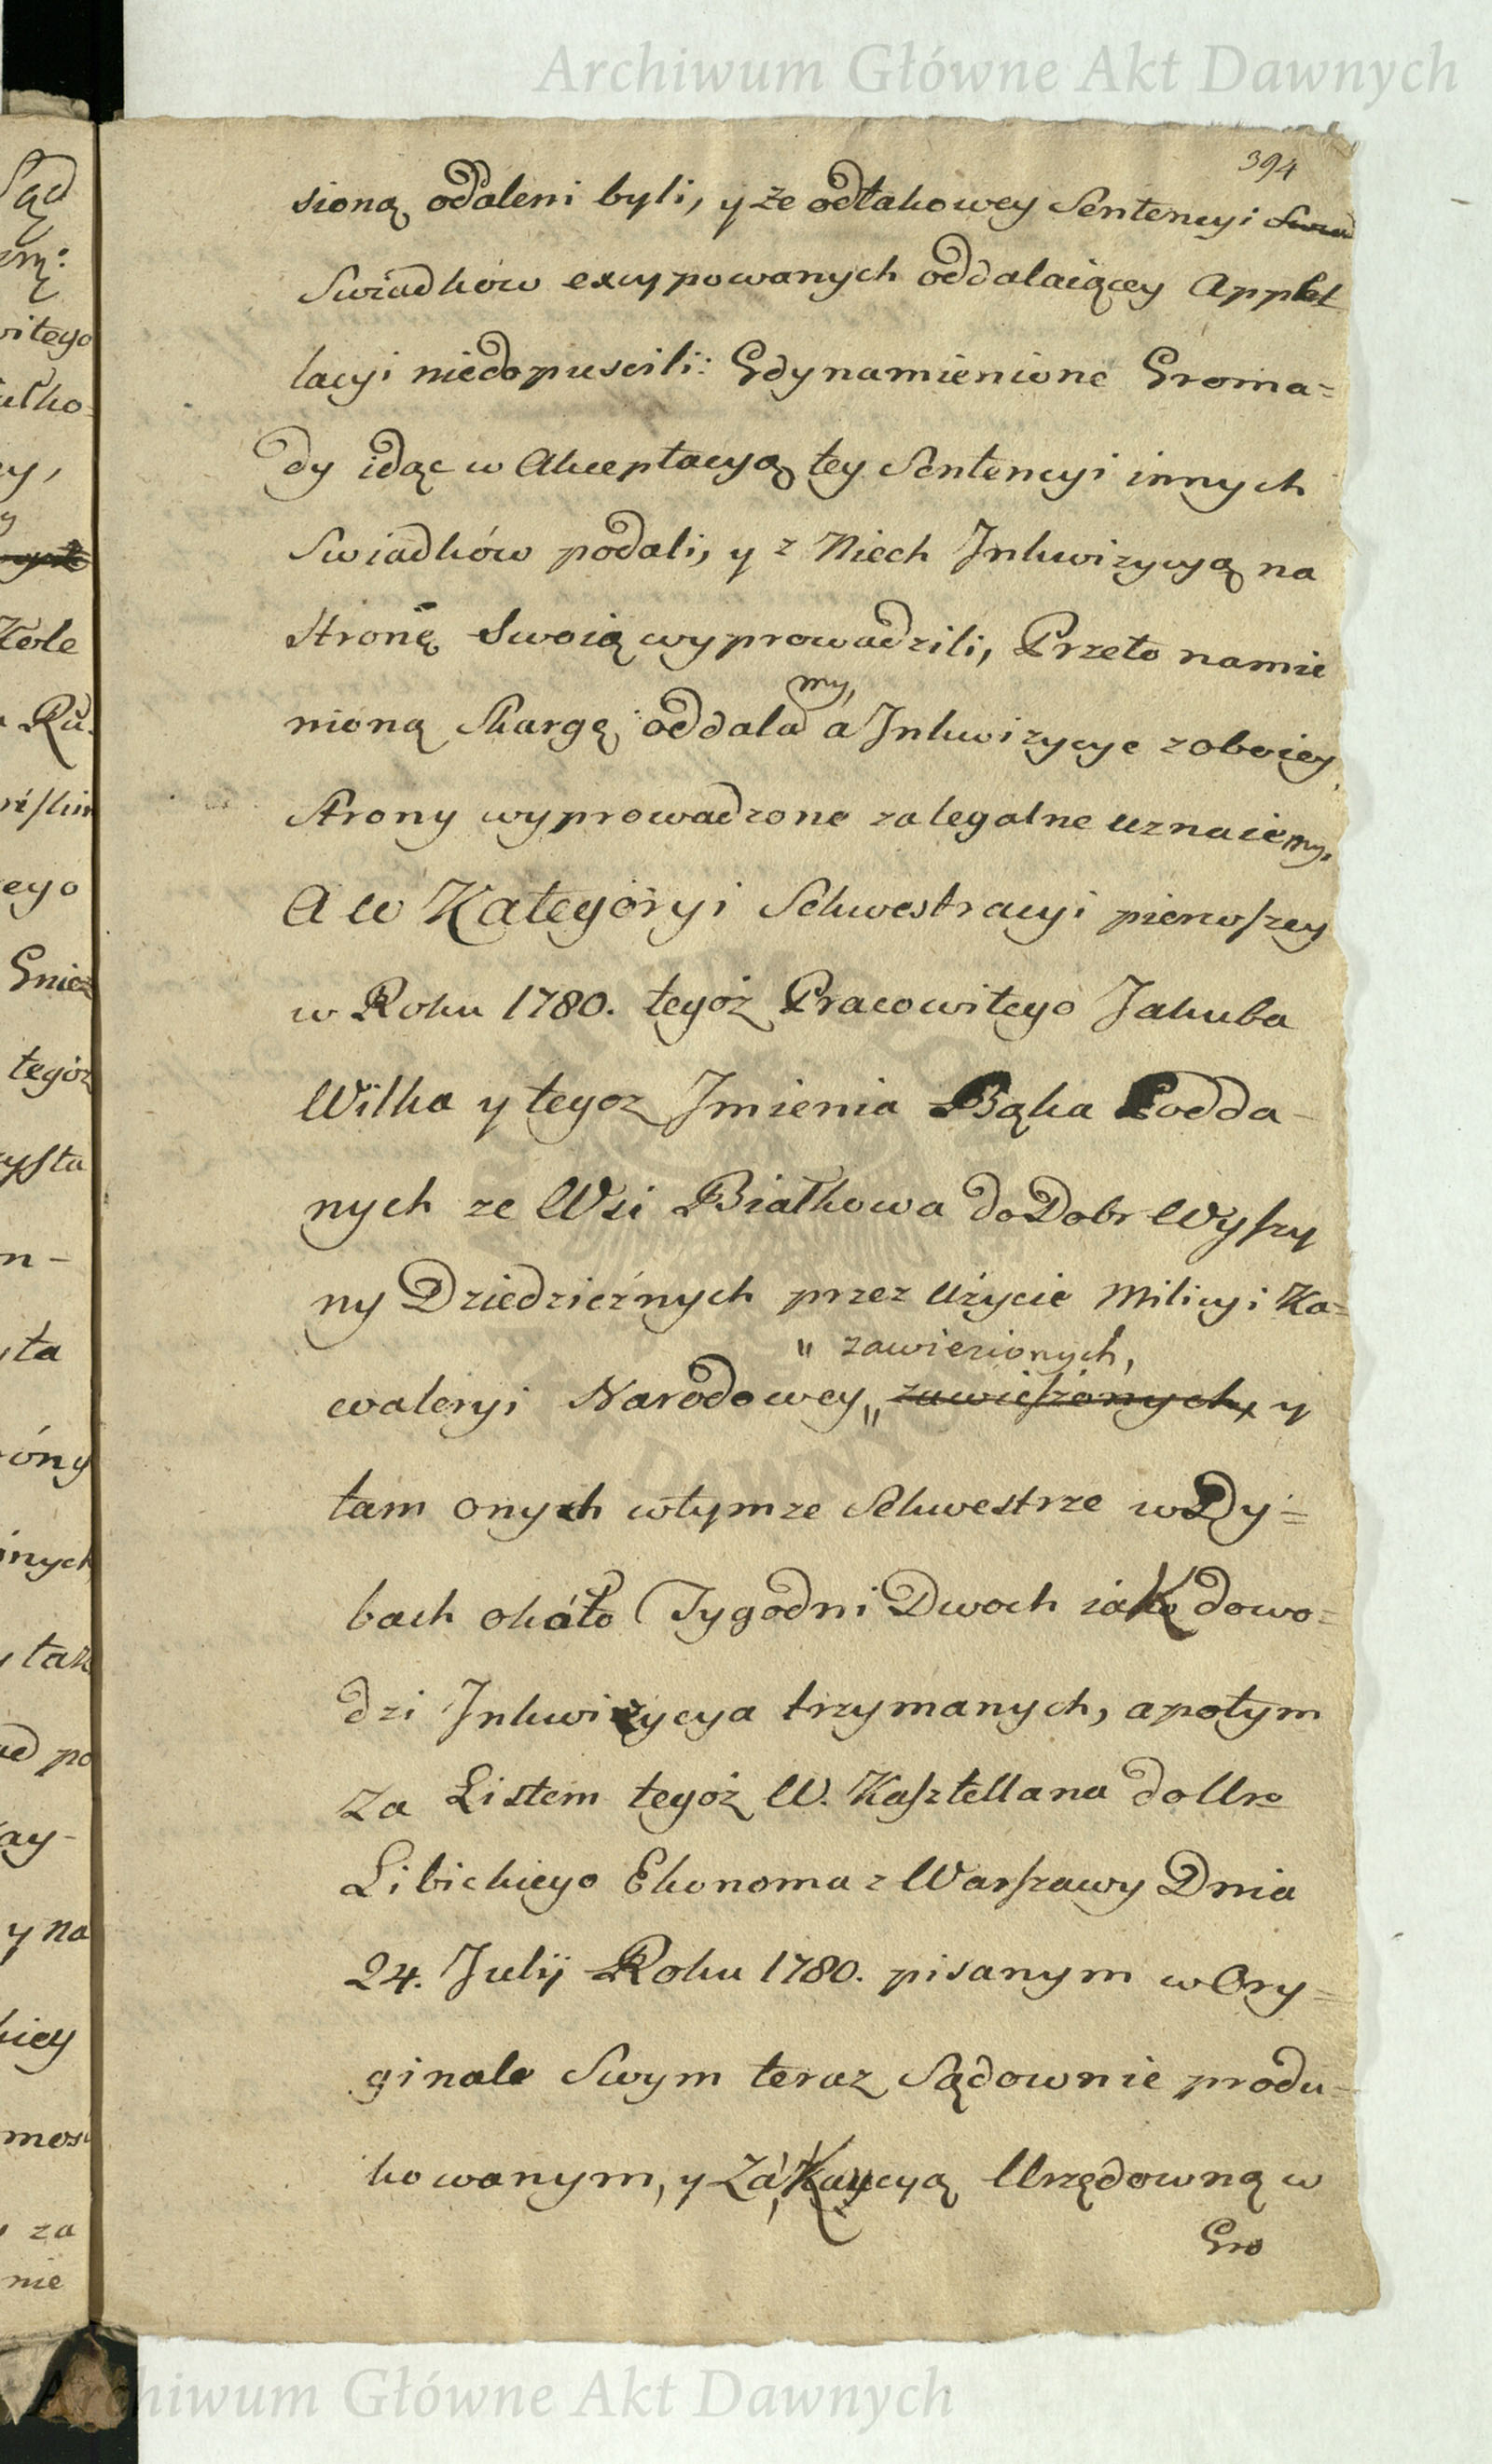 Archiwum Główne Akt Dawnych
394
sioną oddaleni byli, y że odtakowey Sentencyi Swiad
Swiadków excypowanych oddalaiącey Appel
lacyi niedopuscili: Gdy namienione Groma=
dy idąc w Akceptacyą tey Sentencyi innych
Swiadków podali, y z Niech Inkwizycyą na
Stronę Swoią wyprowadzili, Przeto namie
my,
nioną Skargę oddala a Inkwizycye z oboiey
Strony wyprowadzone za legalne uznaiemy.
A w Kategoryi Sekwestracyi pierwszey
w Roku 1780. tegoż Pracowitego Jakuba
Wilka y tegoz Imienia Bąka Podda-
nych ze Wsi Białkowa do Dobr Wyszy
ny Dziedzicznych przez Użycie Milicyi Ka=
" zawiezionych,
waleryi Narodowey " zawieszonych, y
tam onych wtymze Sekwestrze w Dy=
bach okáło Tygodni Dwoch iako dowo=
dzi Inkwizycya trzymanych, apotym
Za Listem tegoż W. Kasztellana do Uro
Libickiego Ekonoma z Warszawy Dnia
24. Julij Roku 1780. pisanym w Ory=
ginale Swym teraz Sądownie produ=
kowanym, y Zá Kaucyą Urzędowną w
Gro
Archiwum Główne Akt Dawnych